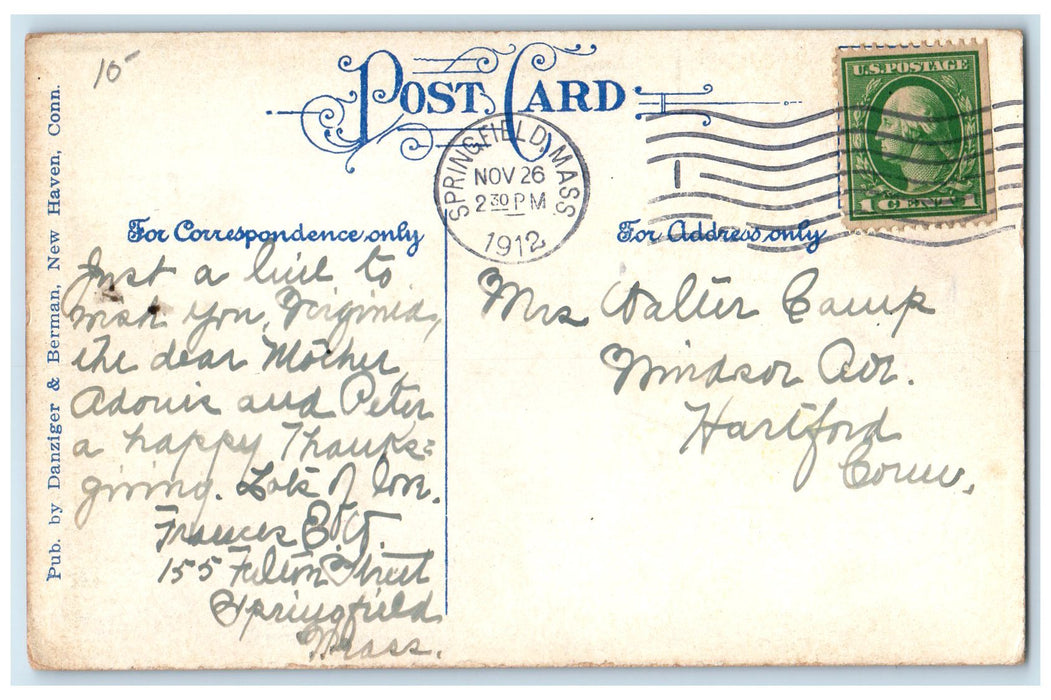 10
POST CARD
Pub. by Danziger & Berman, New Haven, Conn.
SPRINGFIELD, MASS
NOV 26
2 30 PM
1912
1
U.S. POSTAGE
1 CENTS 1
For Correspondence only
Just a line to
wish you, Virginia,
the dear Mother,
Adonis and Peter
a happy Thanks=
giving. Lots of love.
Frances
155 Fulton Street
Springfield
Mass.
For Address only
Mrs Walter Camp
Windsor Ave.
Hartford
Conn.